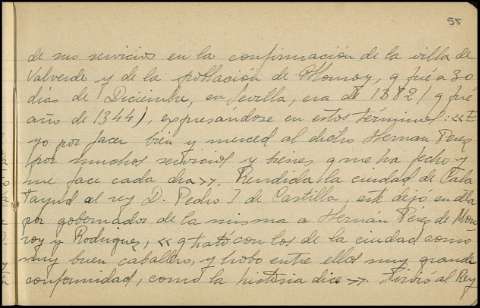 58
de sus servicios en la confirmación de la villa de
Valverde y de la población de Monroy, q fué a 30
días de Diciembre, en Sevilla, era de 1382 (q fué
año de 1344), expresándose en estos términos: «E
yo por facer bien y merced al dicho Hernan Perez
por muchos servicios y bienes q me ha fecho y
me face cada dia». Rendida la ciudad de Cala
tayud al rey D. Pedro I de Castilla, este dejó en ella
por gobernador de la misma a Hernán Perez de Mon
roy y Rodriguez, «q trató con los de la ciudad como
muy buen caballero, y hobo entre ellos muy grande
conformidad, como la historia dice». Sirvió al Rey